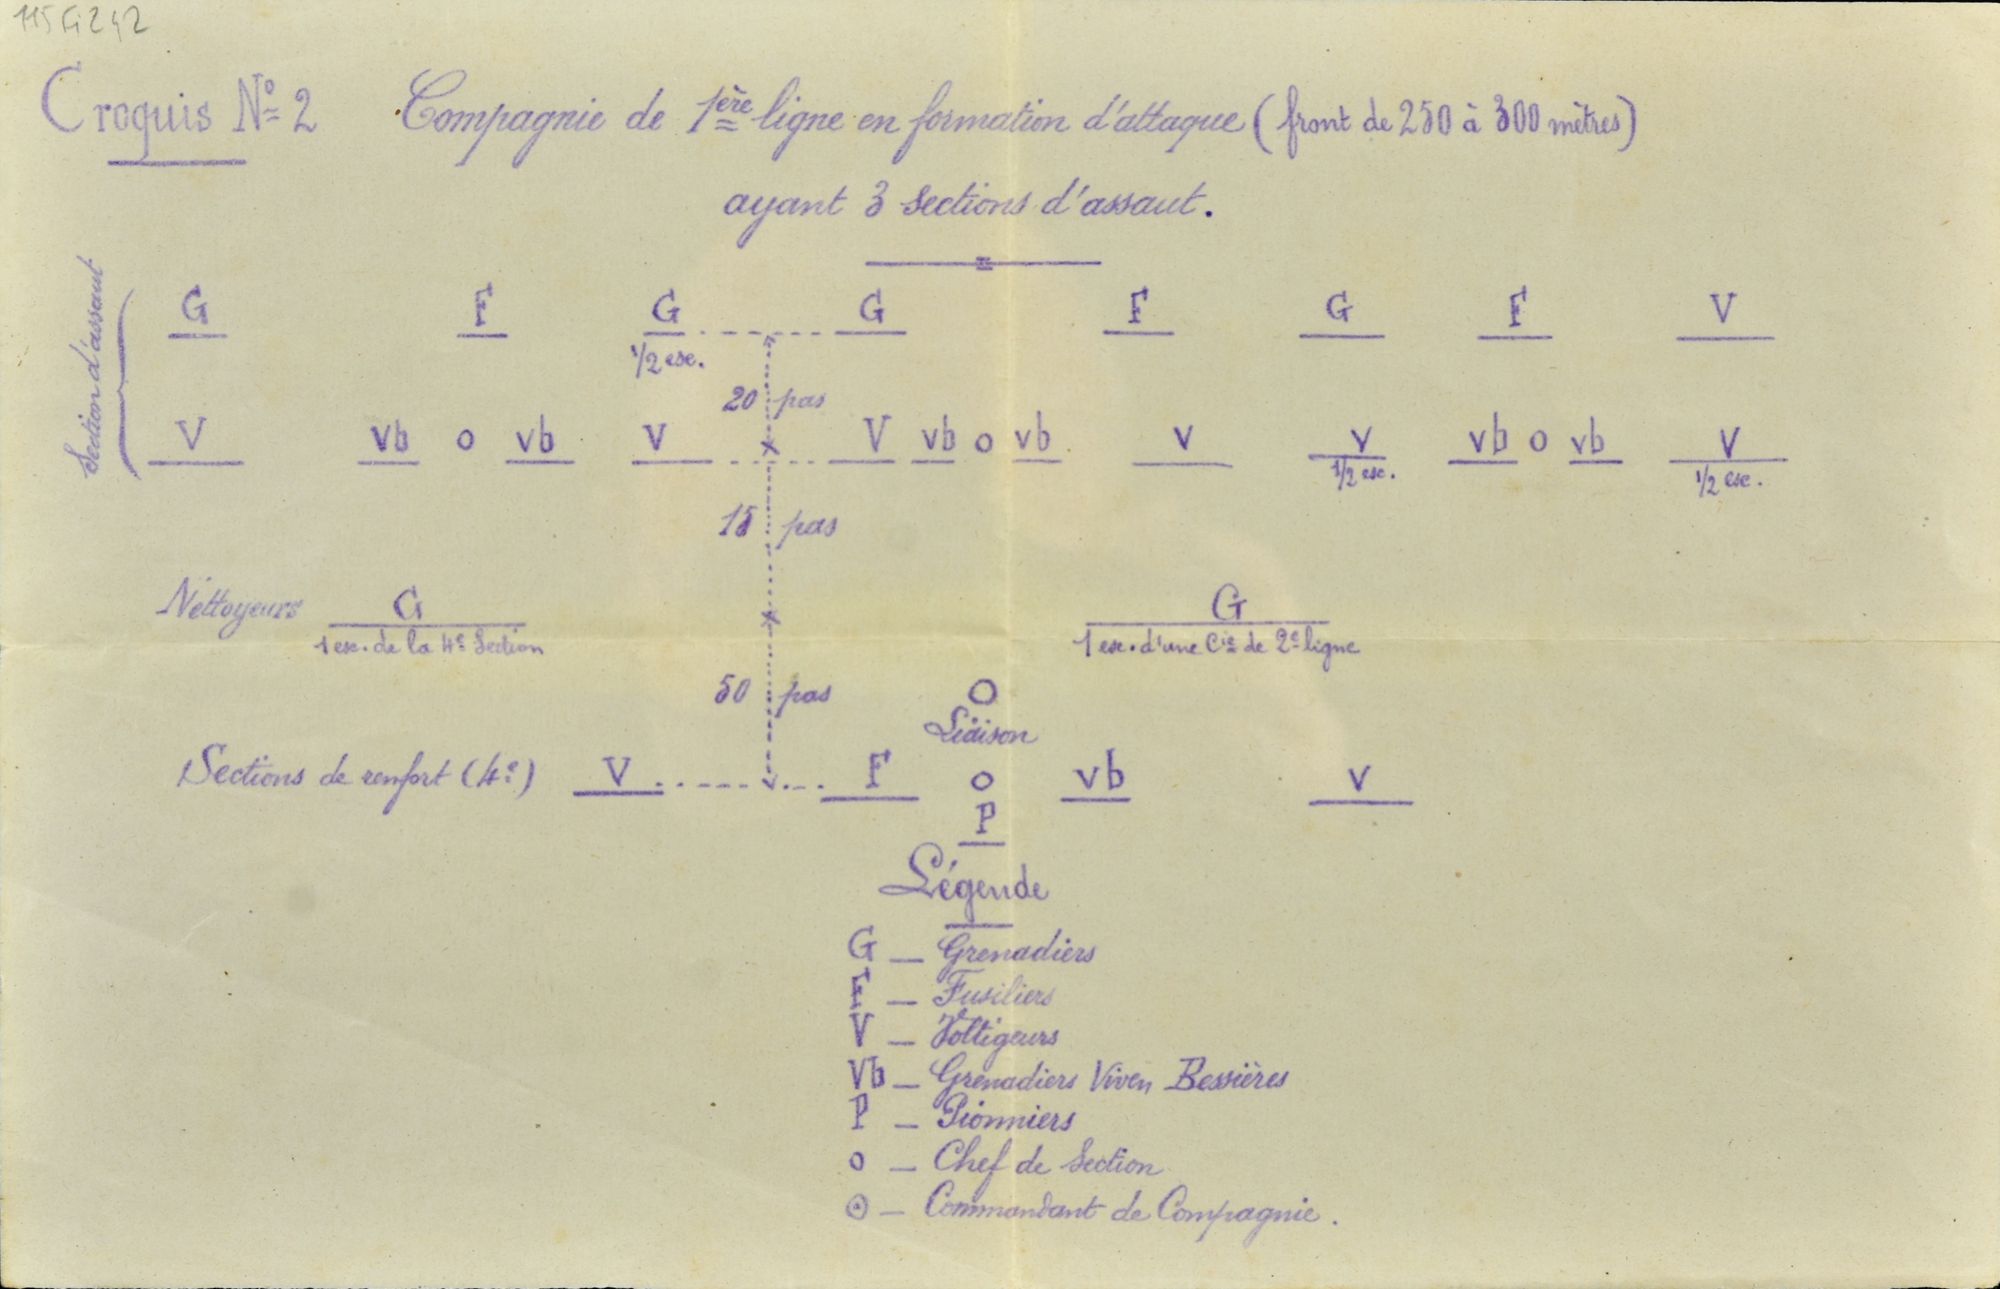 Croquis Nº 2 Compagnie de 1ère ligne en formation d'attaque (front de 250 à 300 mètres)
ayant 3 sections d'assaut.
Section d'assaut
G F G G F G F V
1/2 esc.
20 pas
V vb o vb V V vb o vb V V vb o vb V
1/2 esc. 1/2 esc.
15 pas
Nettoyeurs G G
1 esc. de la 4e Section 1 esc. d'une Cie de 2e ligne
50 pas O
Liaison
Sections de renfort (4e) V F o vb V
P
Légende
G — Grenadiers
F — Fusiliers
V — Voltigeurs
Vb — Grenadiers Viven Bessières
P — Pionniers
o — Chef de Section
⊙ — Commandant de Compagnie.